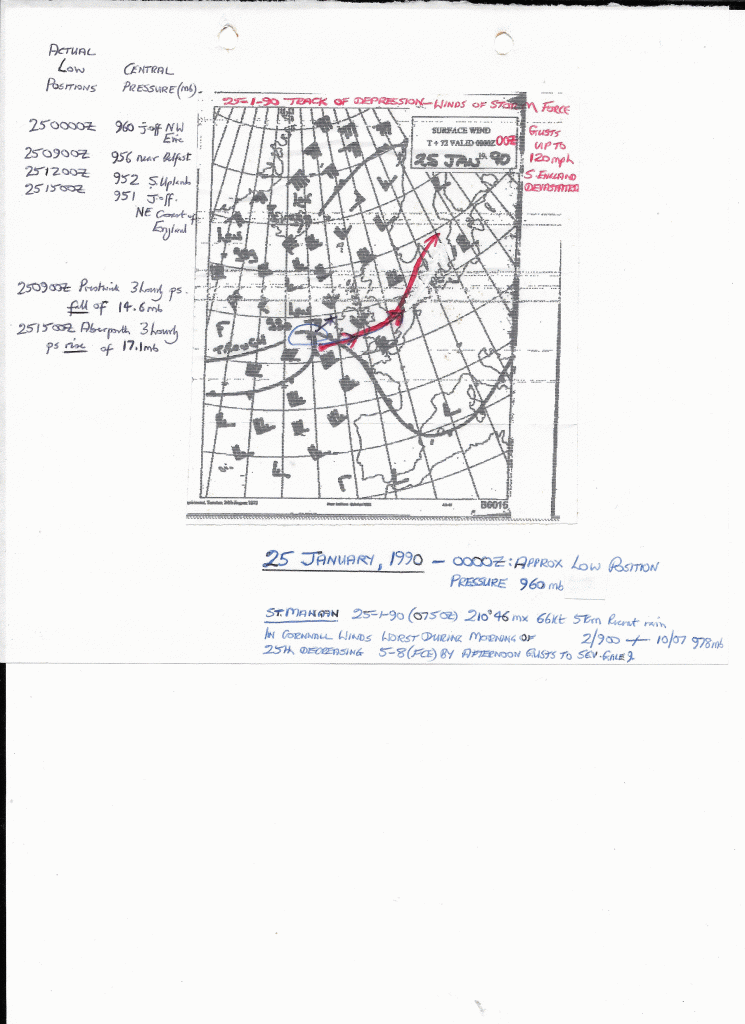 ACTUAL
LOW CENTRAL
POSITIONS PRESSURE (mb).
250000Z 960 J off NW
Eire
250900Z 956 near Belfast
251200Z 952 S Uplands
251500Z 951 J off.
NE Coast of
England
250900Z Prestwick 3 hourly ps.
fall of 14.6mb
251500Z Aberporth 3 hourly
ps rise of 17.1mb
25-1-90 TRACK OF DEPRESSION - WINDS OF STORM FORCE
SURFACE WIND
T + 72 VALID 0000Z 00Z
25 JAN 19 90
GUSTS
UP TO
120mph
S. ENGLAND
DEVASTATED
Low
Low
TROUGH
B6015
25 JANUARY, 1990 - 0000Z: APPROX LOW POSITION
PRESSURE 960mb
ST. MAWGAN 25-1-90 (0750Z) 210° 46 mx 66kt 5km Recent rain
IN CORNWALL WINDS WORST DURING MORNING OF 2/900 10/07 978mb
25th DECREASING 5-8 (FCE) BY AFTERNOON GUSTS TO SEV. GALE 9